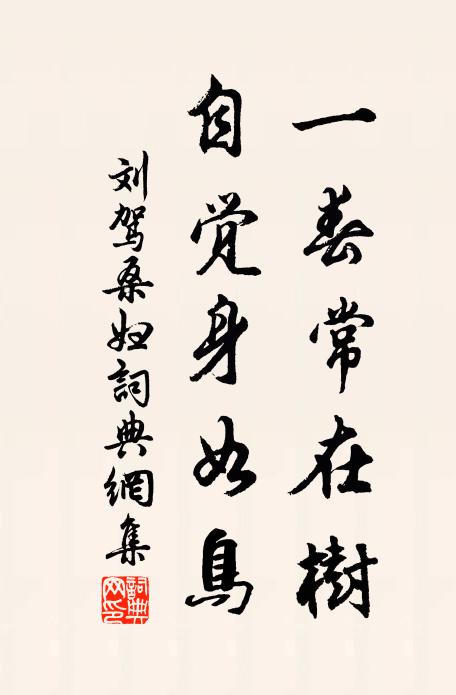 一春常在樹
自觉身如鳥
刘驾桑妇詞典網集
詞典网印